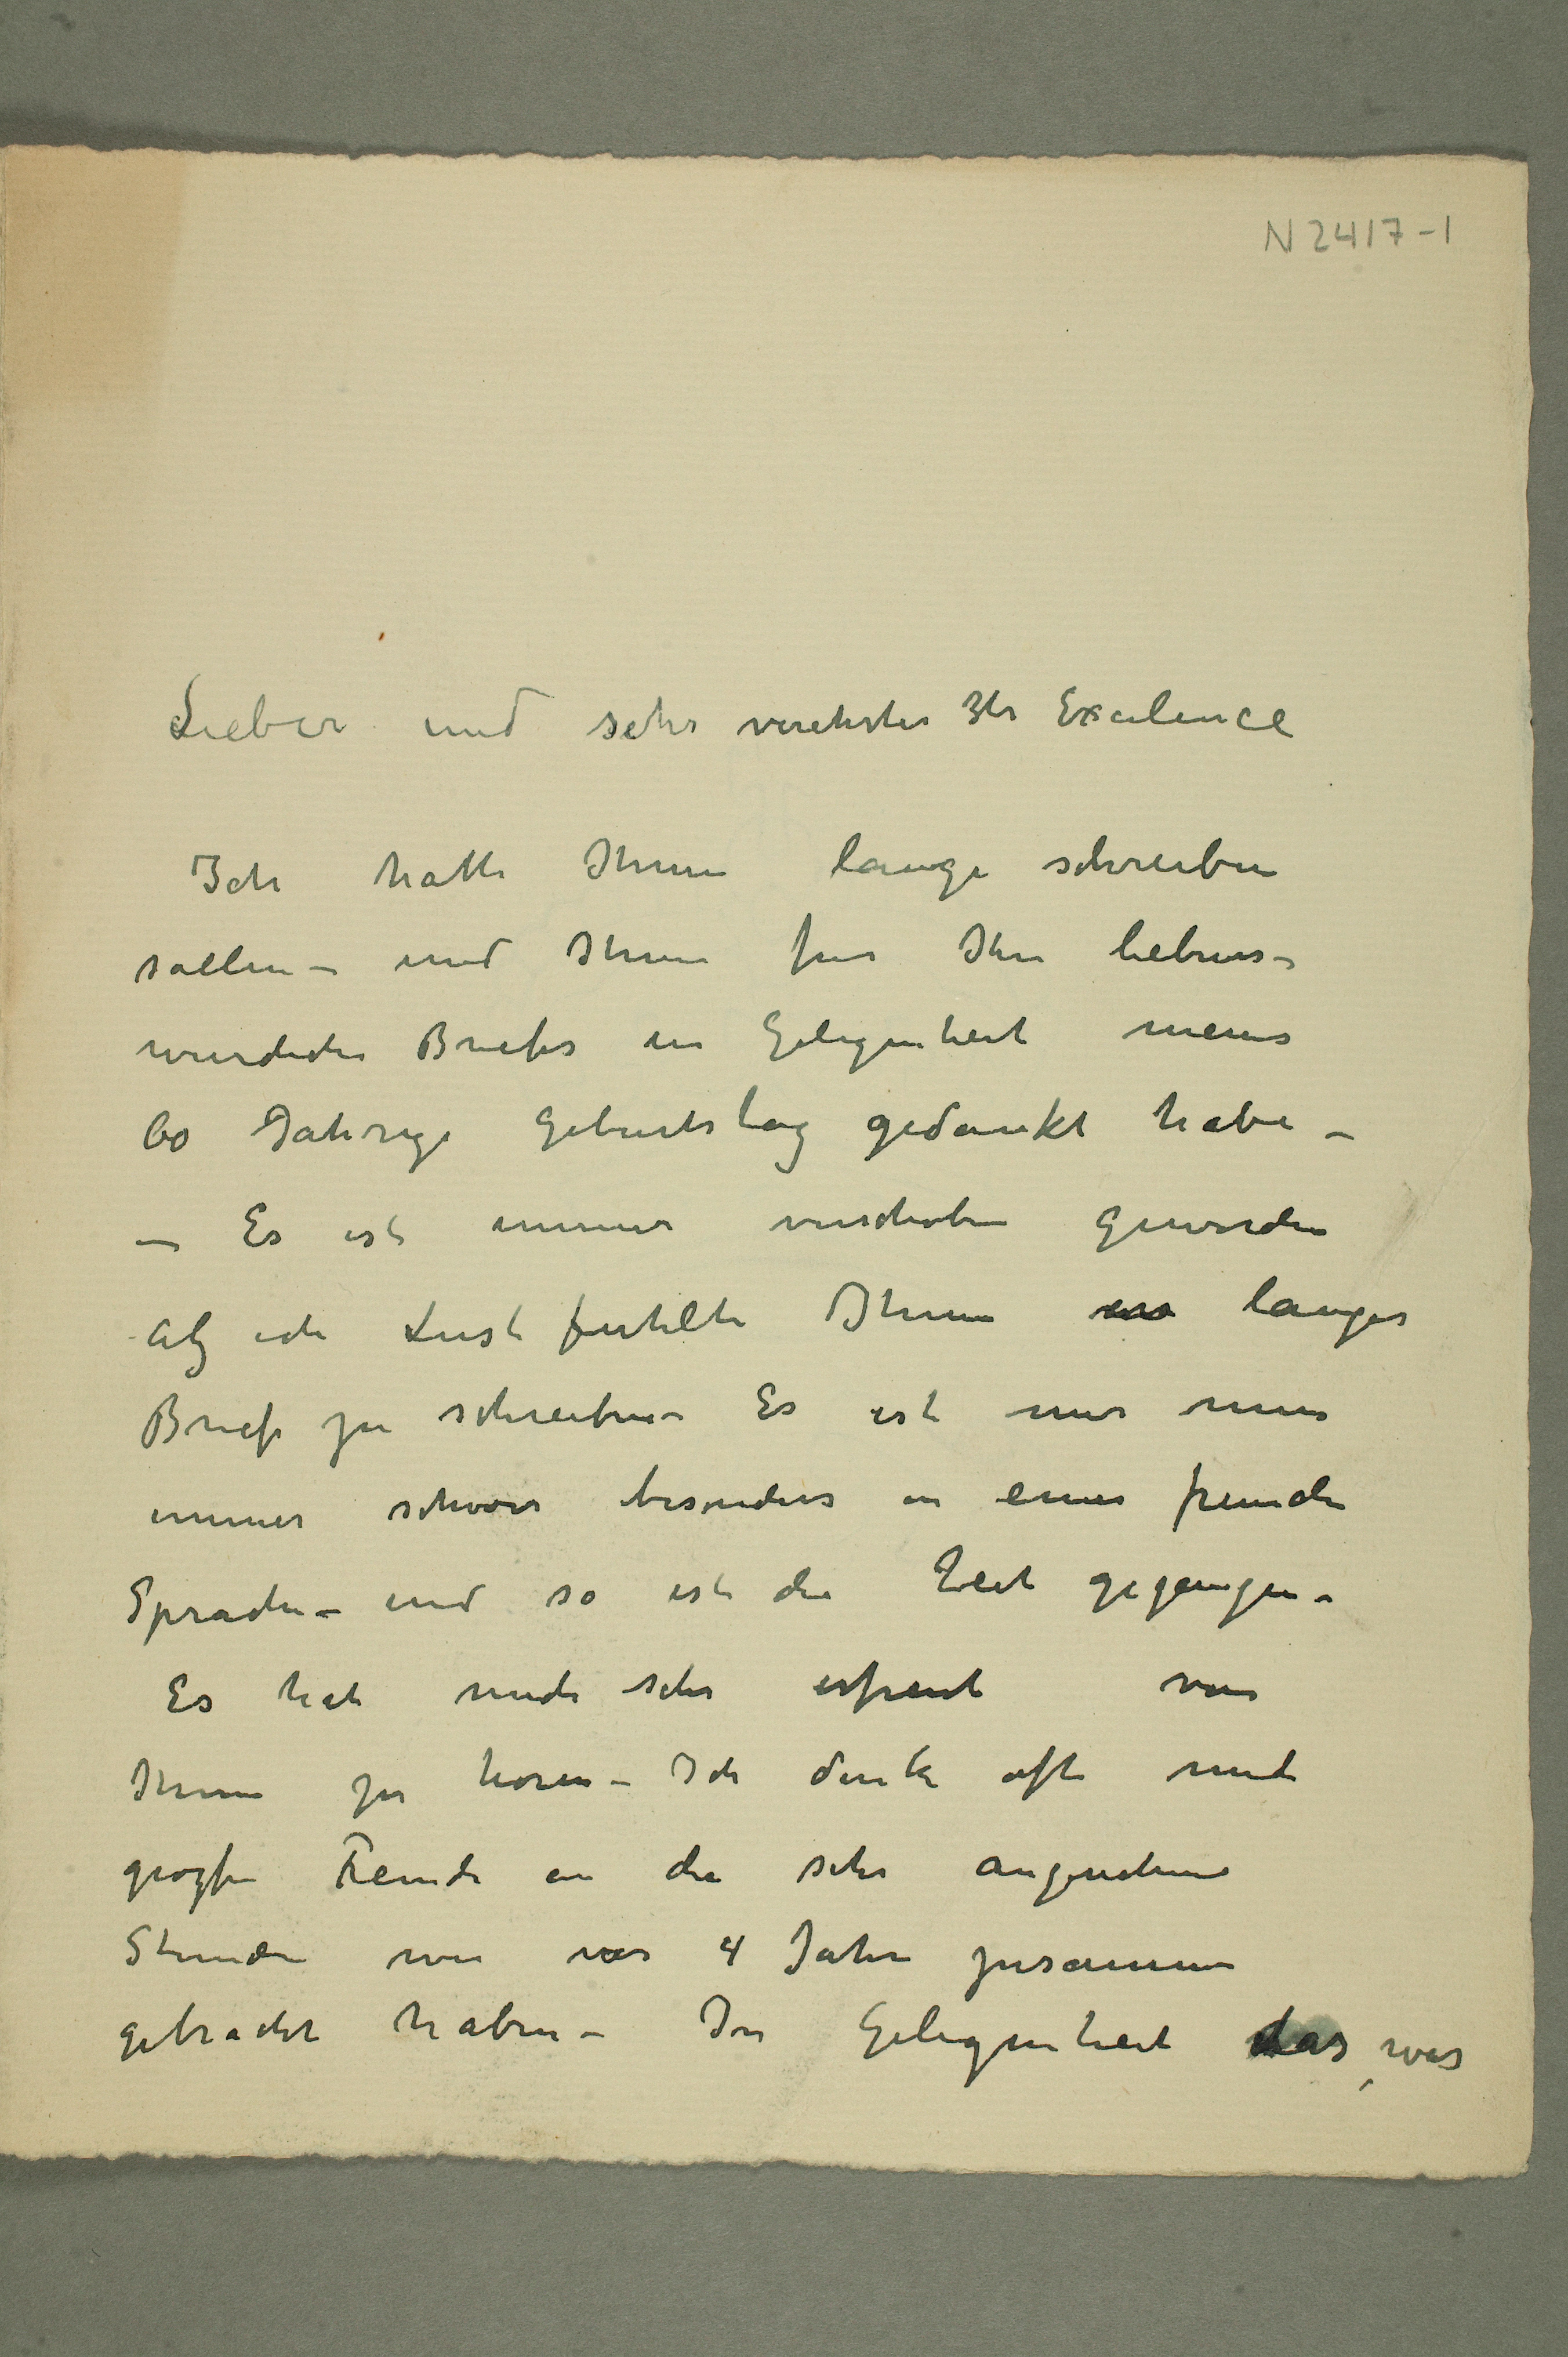 N 2417-1
Lieber und sehr verehrter Ihr Excelence
Ich hatte Ihnen lange schreiben
sollen – und Ihnen fur Ihr liebens-
wurdiche Briefes in Gelegenheit meines
60 Jahrige Geburtstag gedankt habe –
– Es ist immer verschoben geworden
Als ich Lust fuhlte Ihnen langer
Brief zu schreiben – Es ist mir nun
immer schwer besonders in einer fremde
Sprache – und so ist die Zeit gegangen –
Es hat mich sehr erfreut von
Ihnen zu horen – Ich denke oft mit
grozse Freude an die sehr angenehme
Stunden wir vor 4 Jahre zusammen
gebracht haben – In Gelegenheit das was